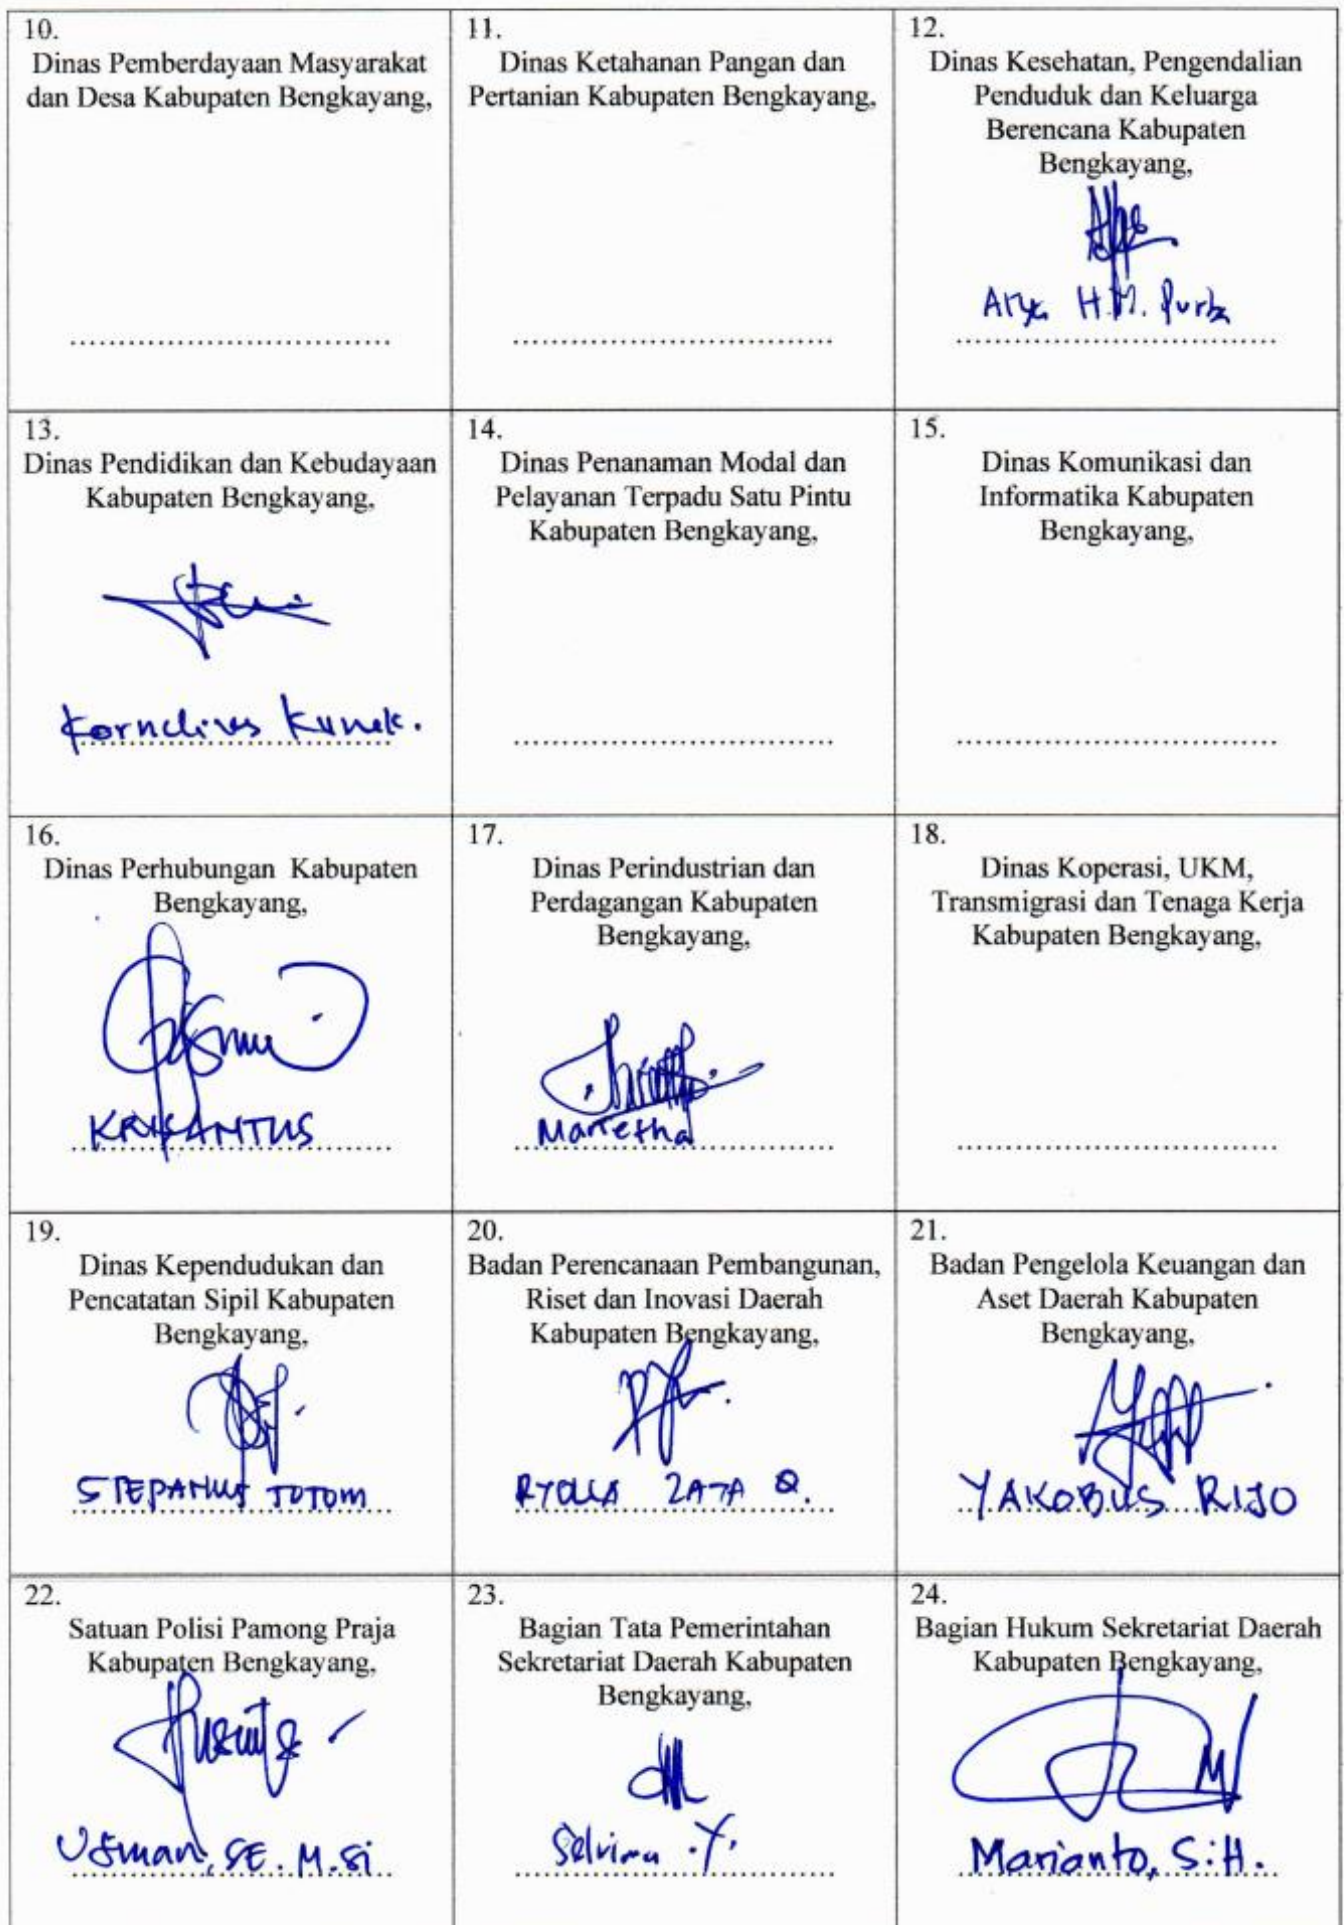 10.
Dinas Pemberdayaan Masyarakat
dan Desa Kabupaten Bengkayang,
................................
11.
Dinas Ketahanan Pangan dan
Pertanian Kabupaten Bengkayang,
................................
12.
Dinas Kesehatan, Pengendalian
Penduduk dan Keluarga
Berencana Kabupaten
Bengkayang,
H.M. Purba
................................
13.
Dinas Pendidikan dan Kebudayaan
Kabupaten Bengkayang,
Kornelius Kunek.
14.
Dinas Penanaman Modal dan
Pelayanan Terpadu Satu Pintu
Kabupaten Bengkayang,
................................
15.
Dinas Komunikasi dan
Informatika Kabupaten
Bengkayang,
................................
16.
Dinas Perhubungan Kabupaten
Bengkayang,
KRISANTUS
17.
Dinas Perindustrian dan
Perdagangan Kabupaten
Bengkayang,
Martetha
18.
Dinas Koperasi, UKM,
Transmigrasi dan Tenaga Kerja
Kabupaten Bengkayang,
................................
19.
Dinas Kependudukan dan
Pencatatan Sipil Kabupaten
Bengkayang,
STEPANUS TOTOM
20.
Badan Perencanaan Pembangunan,
Riset dan Inovasi Daerah
Kabupaten Bengkayang,
ZATA Q.
21.
Badan Pengelola Keuangan dan
Aset Daerah Kabupaten
Bengkayang,
YAKOBUS RIJO
22.
Satuan Polisi Pamong Praja
Kabupaten Bengkayang,
Usman, SE. M.Si
23.
Bagian Tata Pemerintahan
Sekretariat Daerah Kabupaten
Bengkayang,
Selvima .Y.
24.
Bagian Hukum Sekretariat Daerah
Kabupaten Bengkayang,
Marianto, S.H.